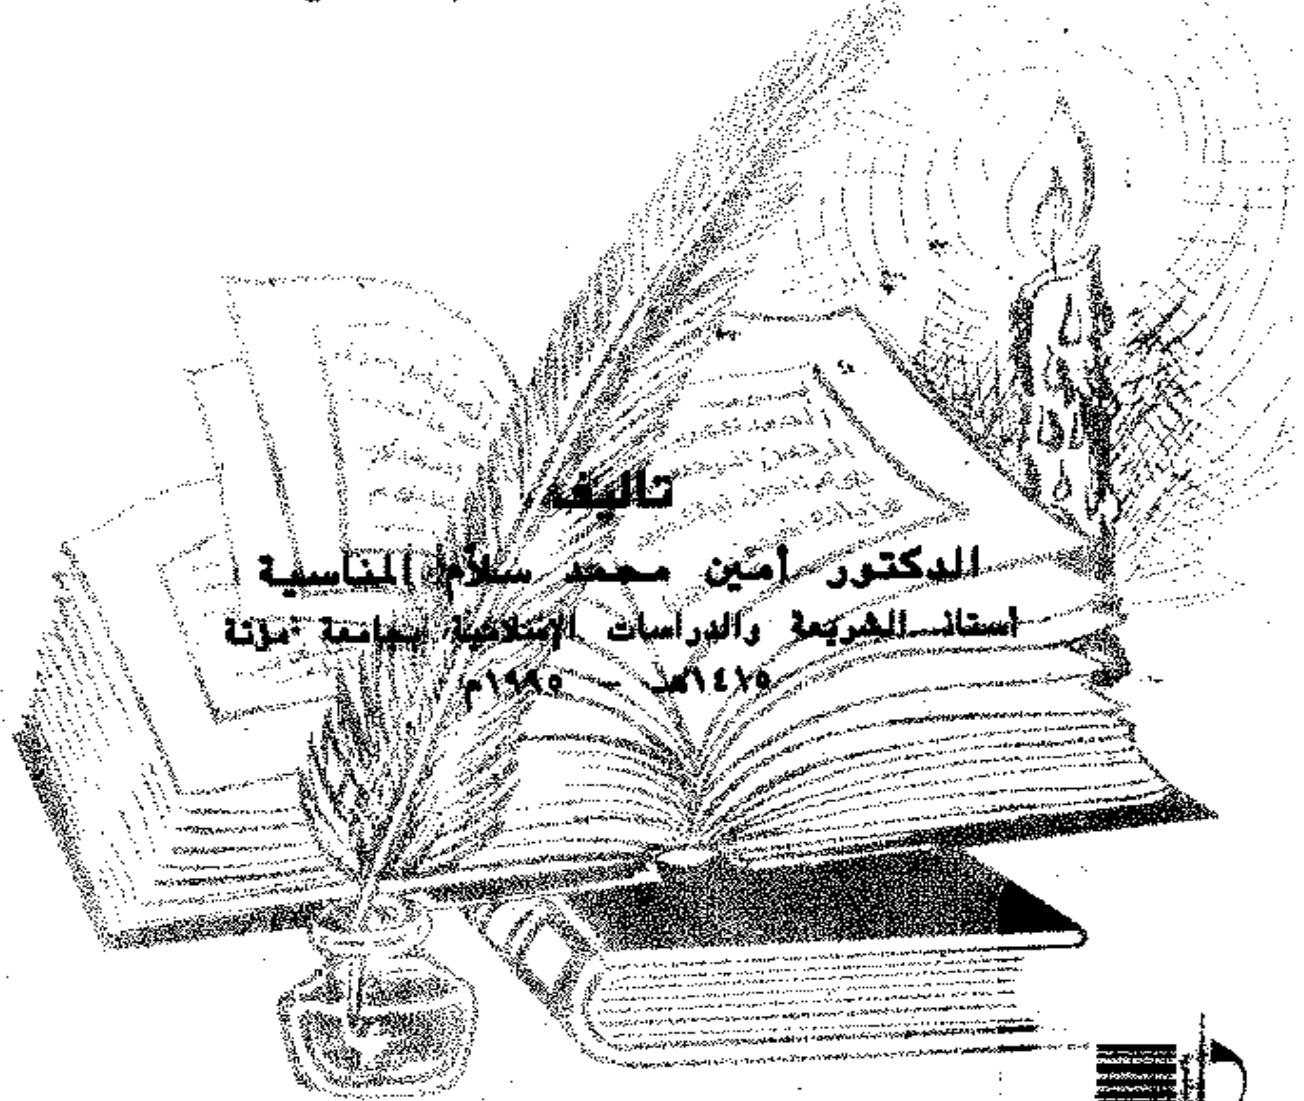 تأليف
الدكتور أمين محمد سلام المناسية
أستاذ الشريعة والدراسات الإسلامية بجامعة مؤتة
١٤١٥هـ - ١٩٩٥م